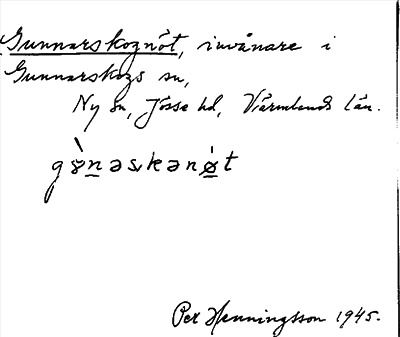 Gunnarskognöt, invånare i
Gunnarskogs sn,
Ny sn, Jösse hd, Värmlands län.
gȣ̀nəskənø̀t
Per Henningsson 1945.